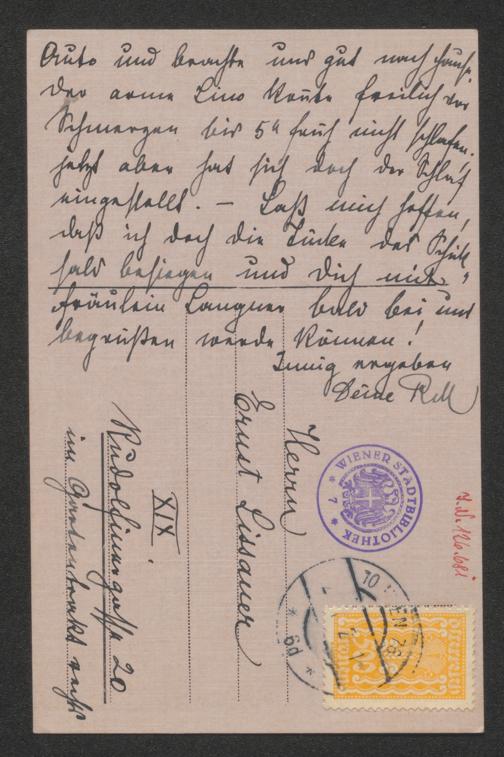 Auto und brachte uns gut nach Hause.
Der arme Lino konnte freilich vor
Schmerzen bis 5h früh nicht schlafen.
Jetzt aber hat sich doch der Schlaf
eingestellt. – Laß mich hoffen,
daß ich doch die Tücken des Schick-
sals besiegen und Dich mit
Fräulein Langner bald bei uns
begrüßen werde können!
Innig ergeben
Deine
Herrn
Ernst Lissauer
XIX.
Rudolfinergasse 20
im Gartentrakt rechts
WIENER STADTBIBLIOTHEK
7
I.N. 126.681
WIEN